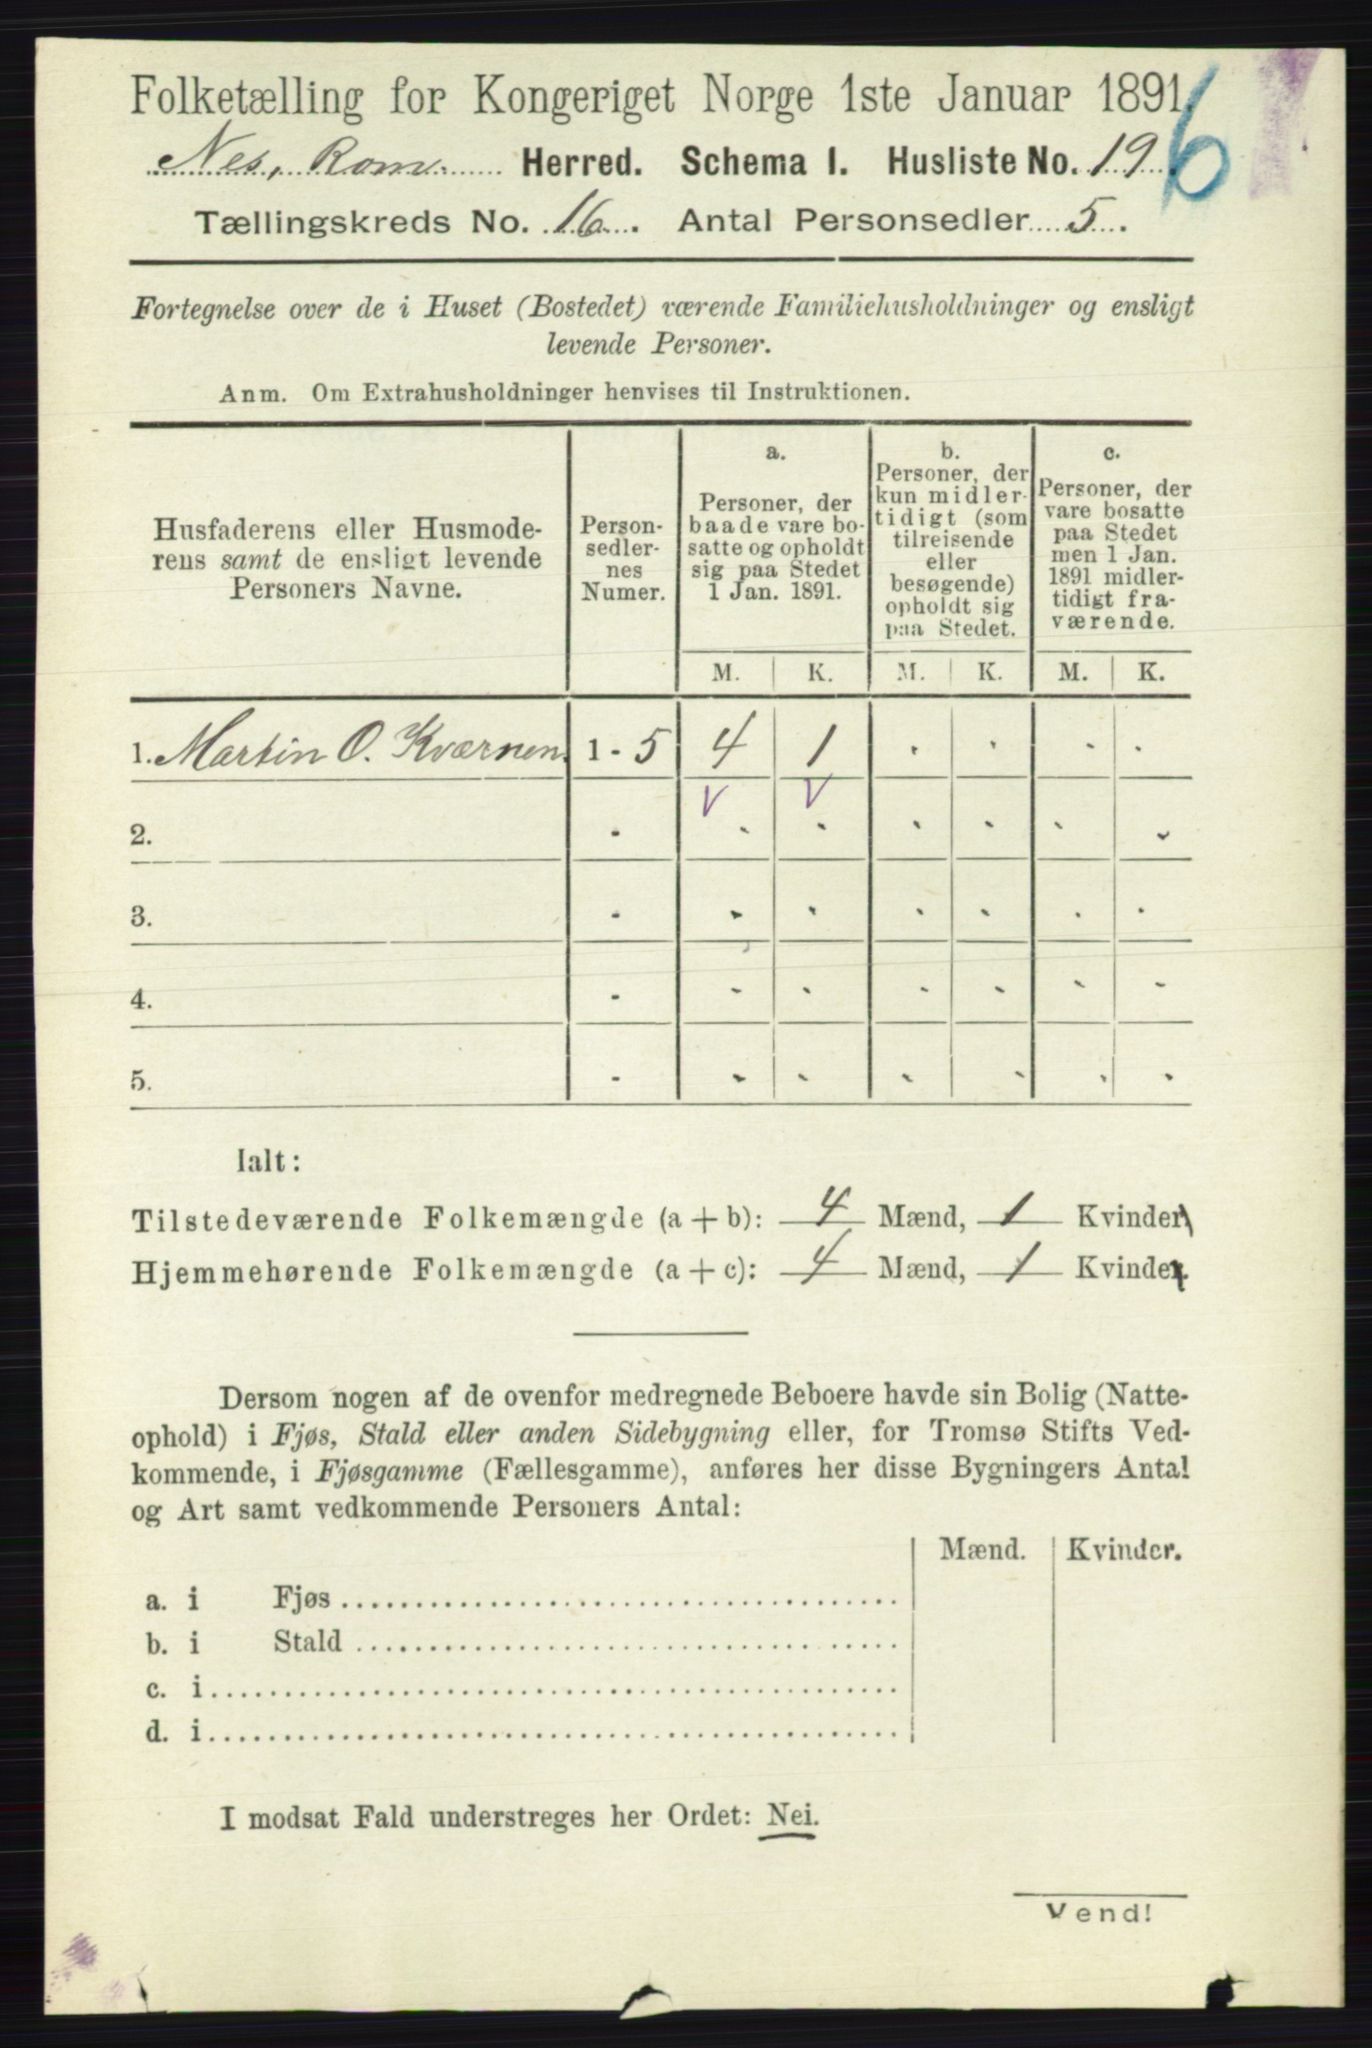 Folketælling for Kongeriget Norge 1ste Januar 1891.
6
Nes, Rom. Herred. Schema I. Husliste No. 19.
Tællingskreds No. 16. Antal Personsedler 5.
Fortegnelse over de i Huset (Bostedet) værende Familiehusholdninger og ensligt
levende Personer.
Anm. Om Extrahusholdninger henvises til Instruktionen.
Husfaderens eller Husmode-
rens samt de ensligt levende
Personers Navne.
Person-
sedler-
nes
Numer.
a.
Personer, der
baade vare bo-
satte og opholdt
sig paa Stedet
1 Jan. 1891.
b.
Personer, der
kun midler-
tidigt (som
tilreisende
eller
besøgende)
opholdt sig
paa Stedet.
c.
Personer, der
vare bosatte
paa Stedet
men 1 Jan.
1891 midler-
tidigt fra-
værende.
M. K. M. K. M. K.
1. Martin O. Kværnen. 1 - 5 4 1 . . . .
V V
2. - . . . . . .
3. - . . . . . .
4. - . . . . . .
5. - . . . . . .
Ialt:
Tilstedeværende Folkemængde (a + b): 4 Mænd, 1 Kvinder
Hjemmehørende Folkemængde (a + c): 4 Mænd, 1 Kvinder.
Dersom nogen af de ovenfor medregnede Beboere havde sin Bolig (Natte-
ophold) i Fjøs, Stald eller anden Sidebygning eller, for Tromsø Stifts Ved-
kommende, i Fjøsgamme (Fællesgamme), anføres her disse Bygningers Antal
og Art samt vedkommende Personers Antal:
Mænd. Kvinder.
a. i Fjøs
b. i Stald
c. i
d. i
I modsat Fald understreges her Ordet: Nei.
Vend!